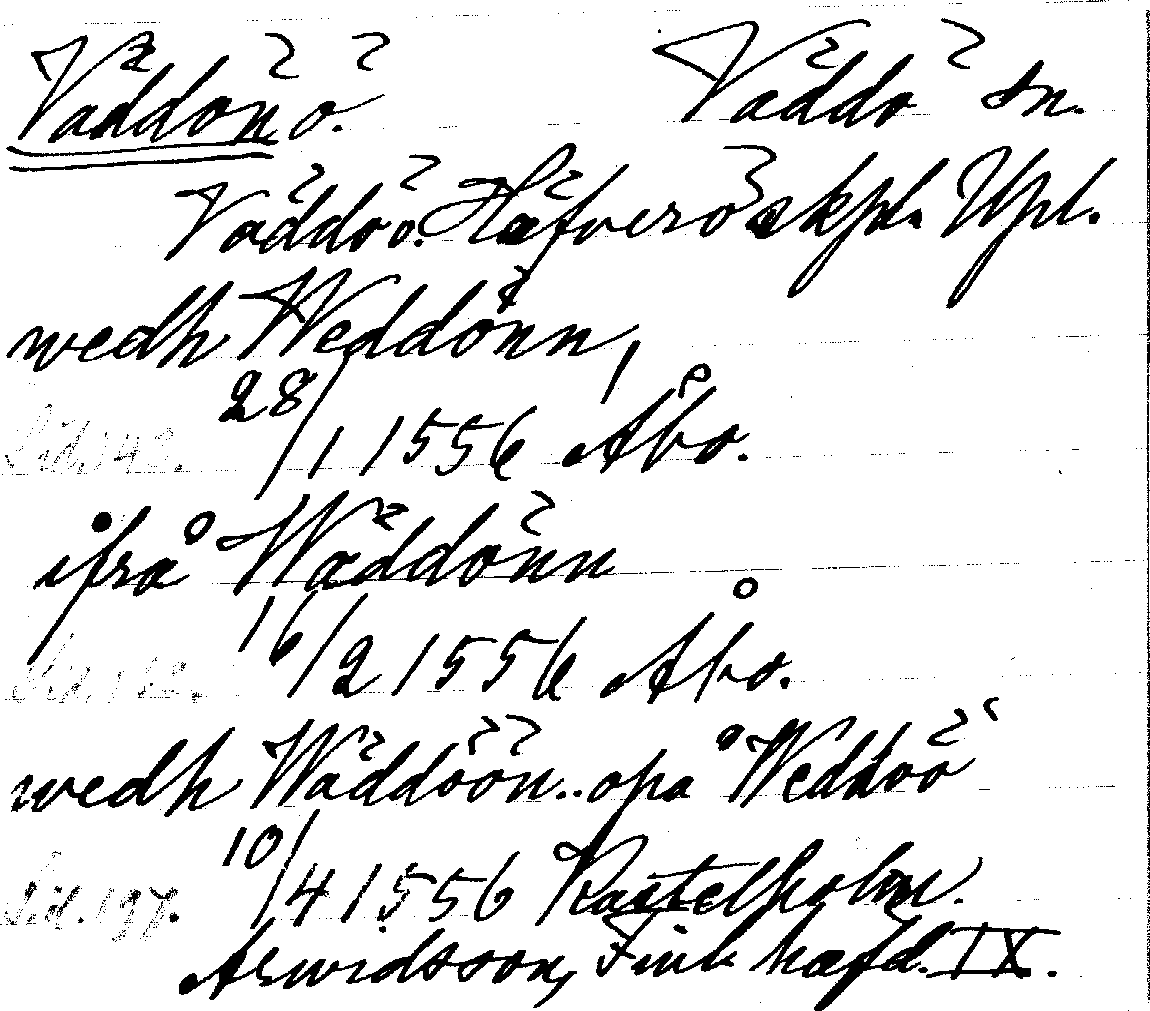 Väddön ö. Väddö sn.
Väddö ö. Häfverö skpl. Upl.
wedh Weddönn,
Sid. 142. 28/1 1556 Åbo.
ifrå Wäddönn
16/2 1556 Åbo.
wedh Wäddöön.. opå Weddöö
Sid. 197. 10/4 1556 Kastelholm.
Arwidsson, Finl. häfd. IX.